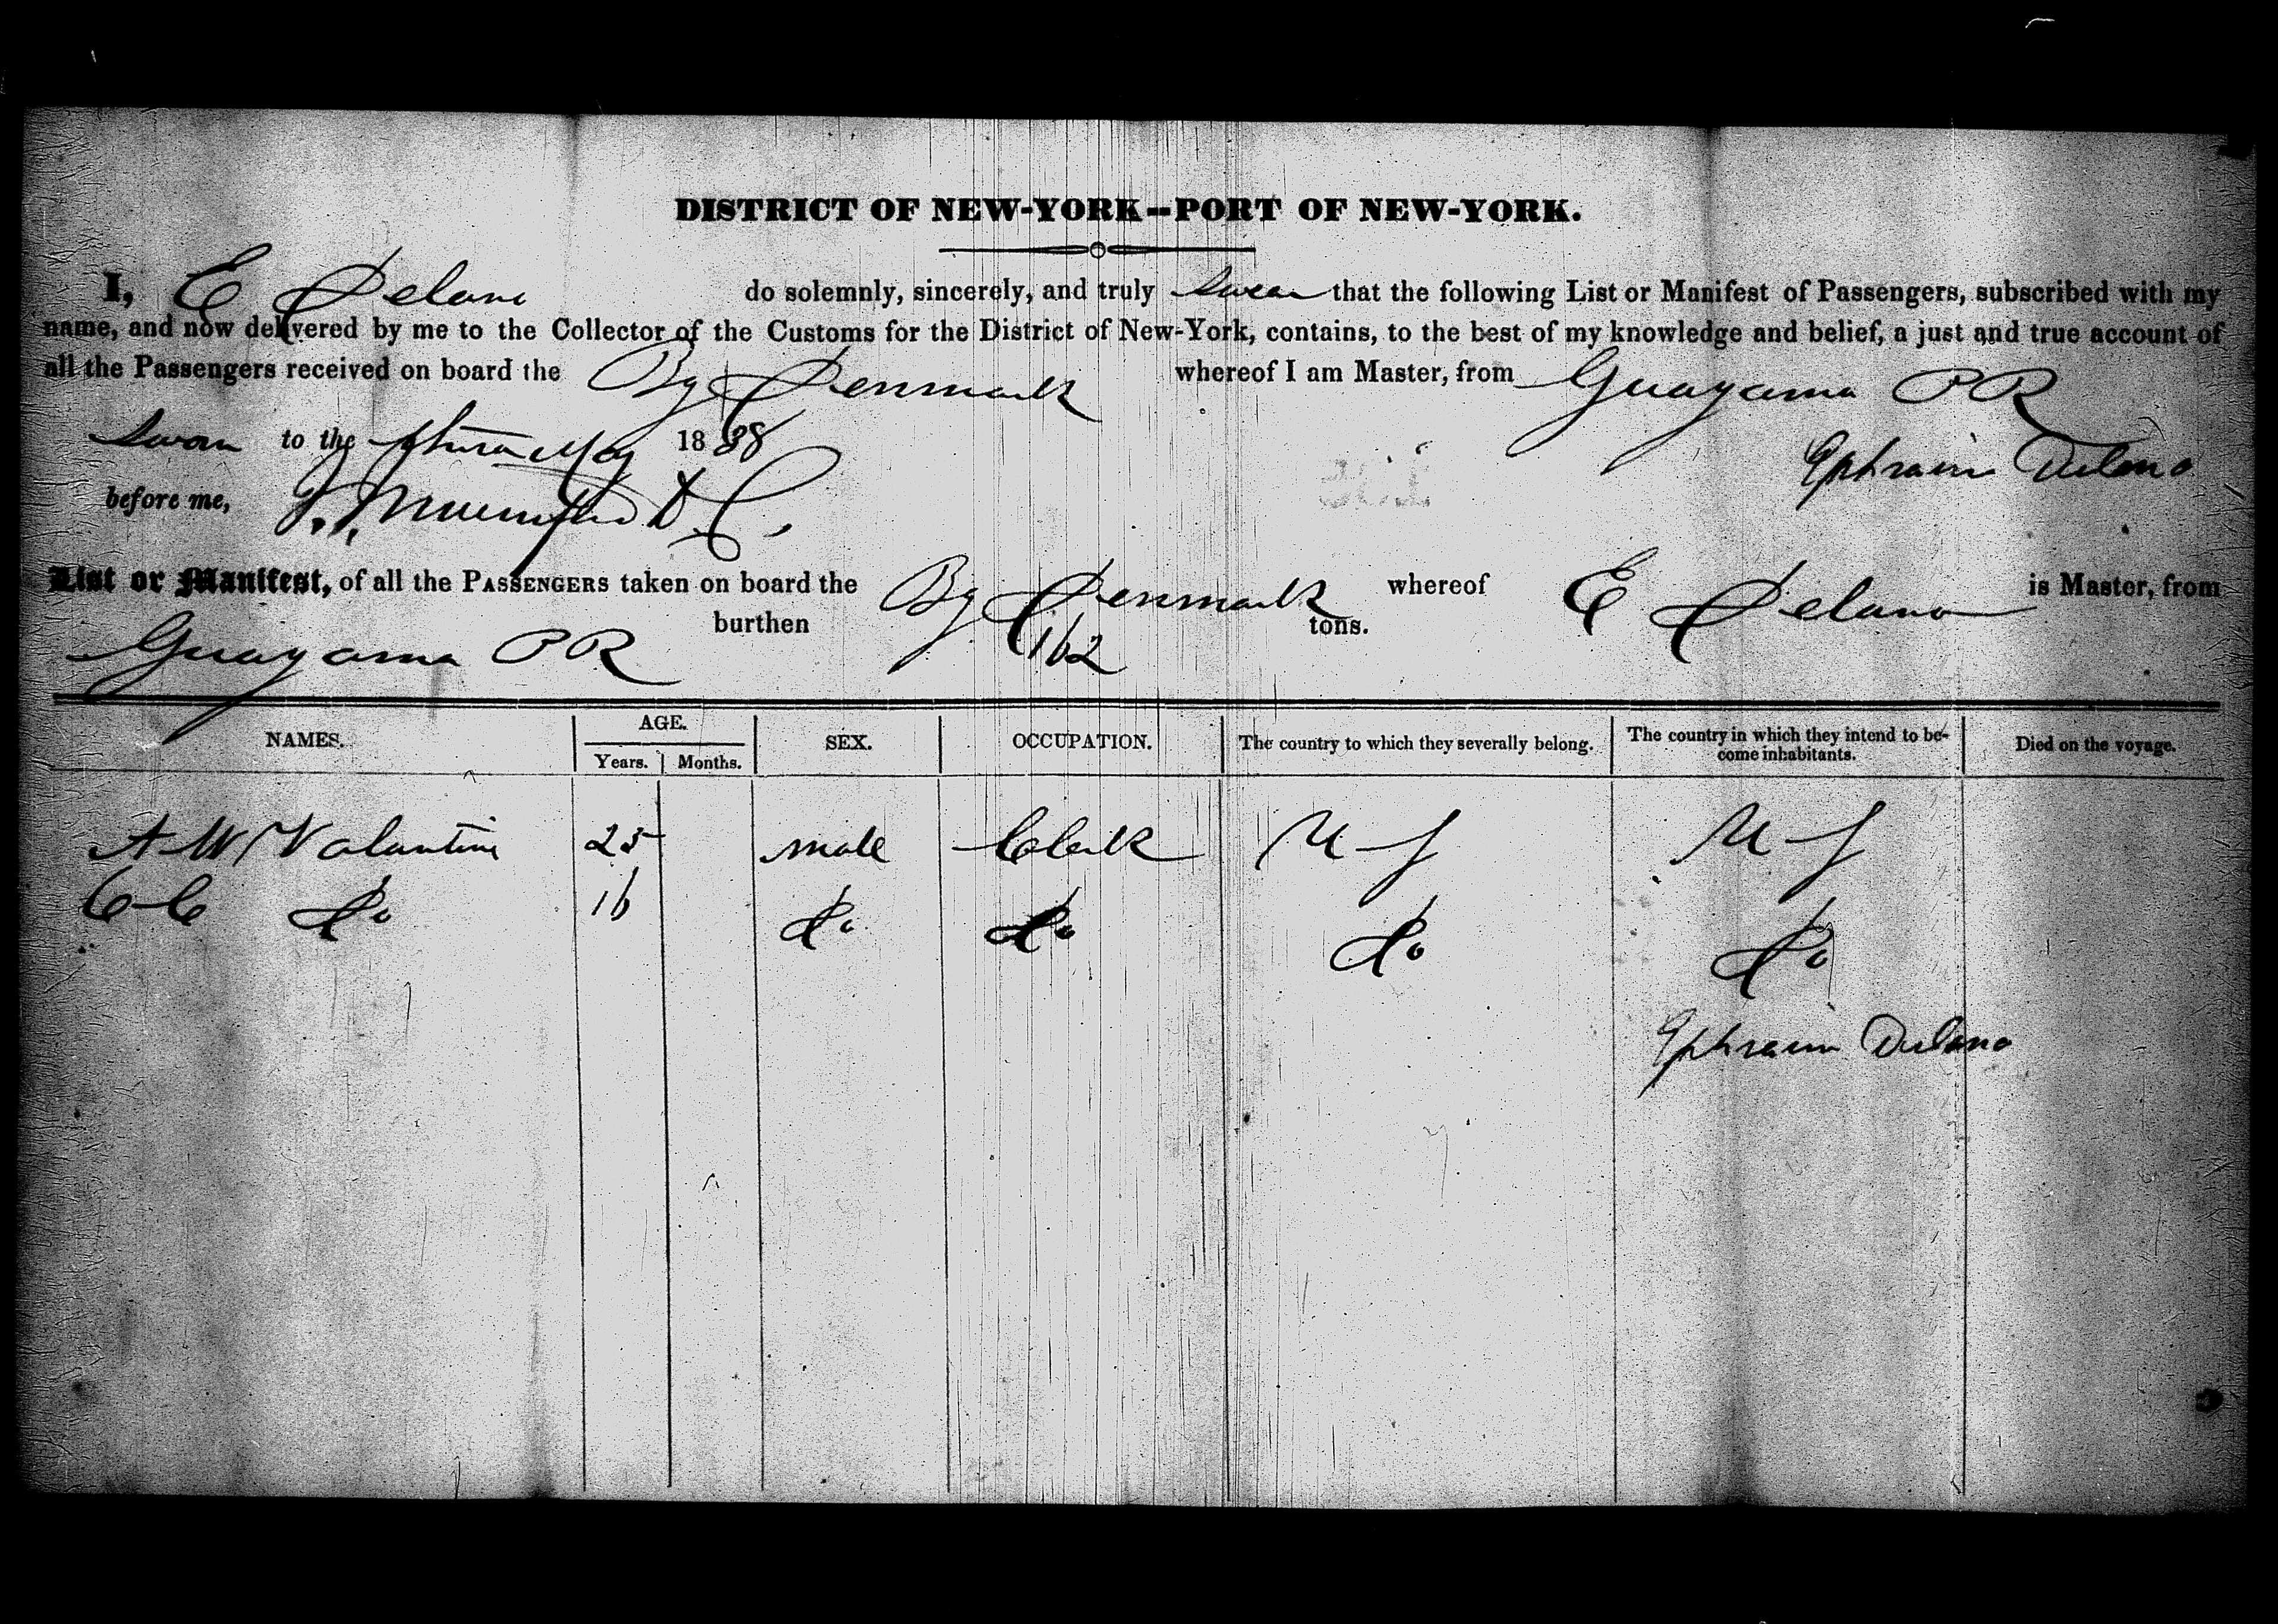 DISTRICT OF NEW-YORK--PORT OF NEW-YORK.
I, E Delano do solemnly, sincerely, and truly swear that the following List or Manifest of Passengers, subscribed with my
name, and now delivered by me to the Collector of the Customs for the District of New-York, contains, to the best of my knowledge and belief, a just and true account of
all the Passengers received on board the Bg Denmark whereof I am Master, from Guayama P R
Sworn to the May 1838 Ephraim Delano
before me,
List or Manifest, of all the PASSENGERS taken on board the Bg Denmark whereof E Delano is Master, from
Guayama P R burthen 162 tons.
NAMES. AGE. SEX. OCCUPATION. The country to which they severally belong. The country in which they intend to be- Died on the voyage.
Years. Months. come inhabitants.
A W Valantine 25 male Clerk U S U S
C C do 16 do do do do
Ephraim Delano